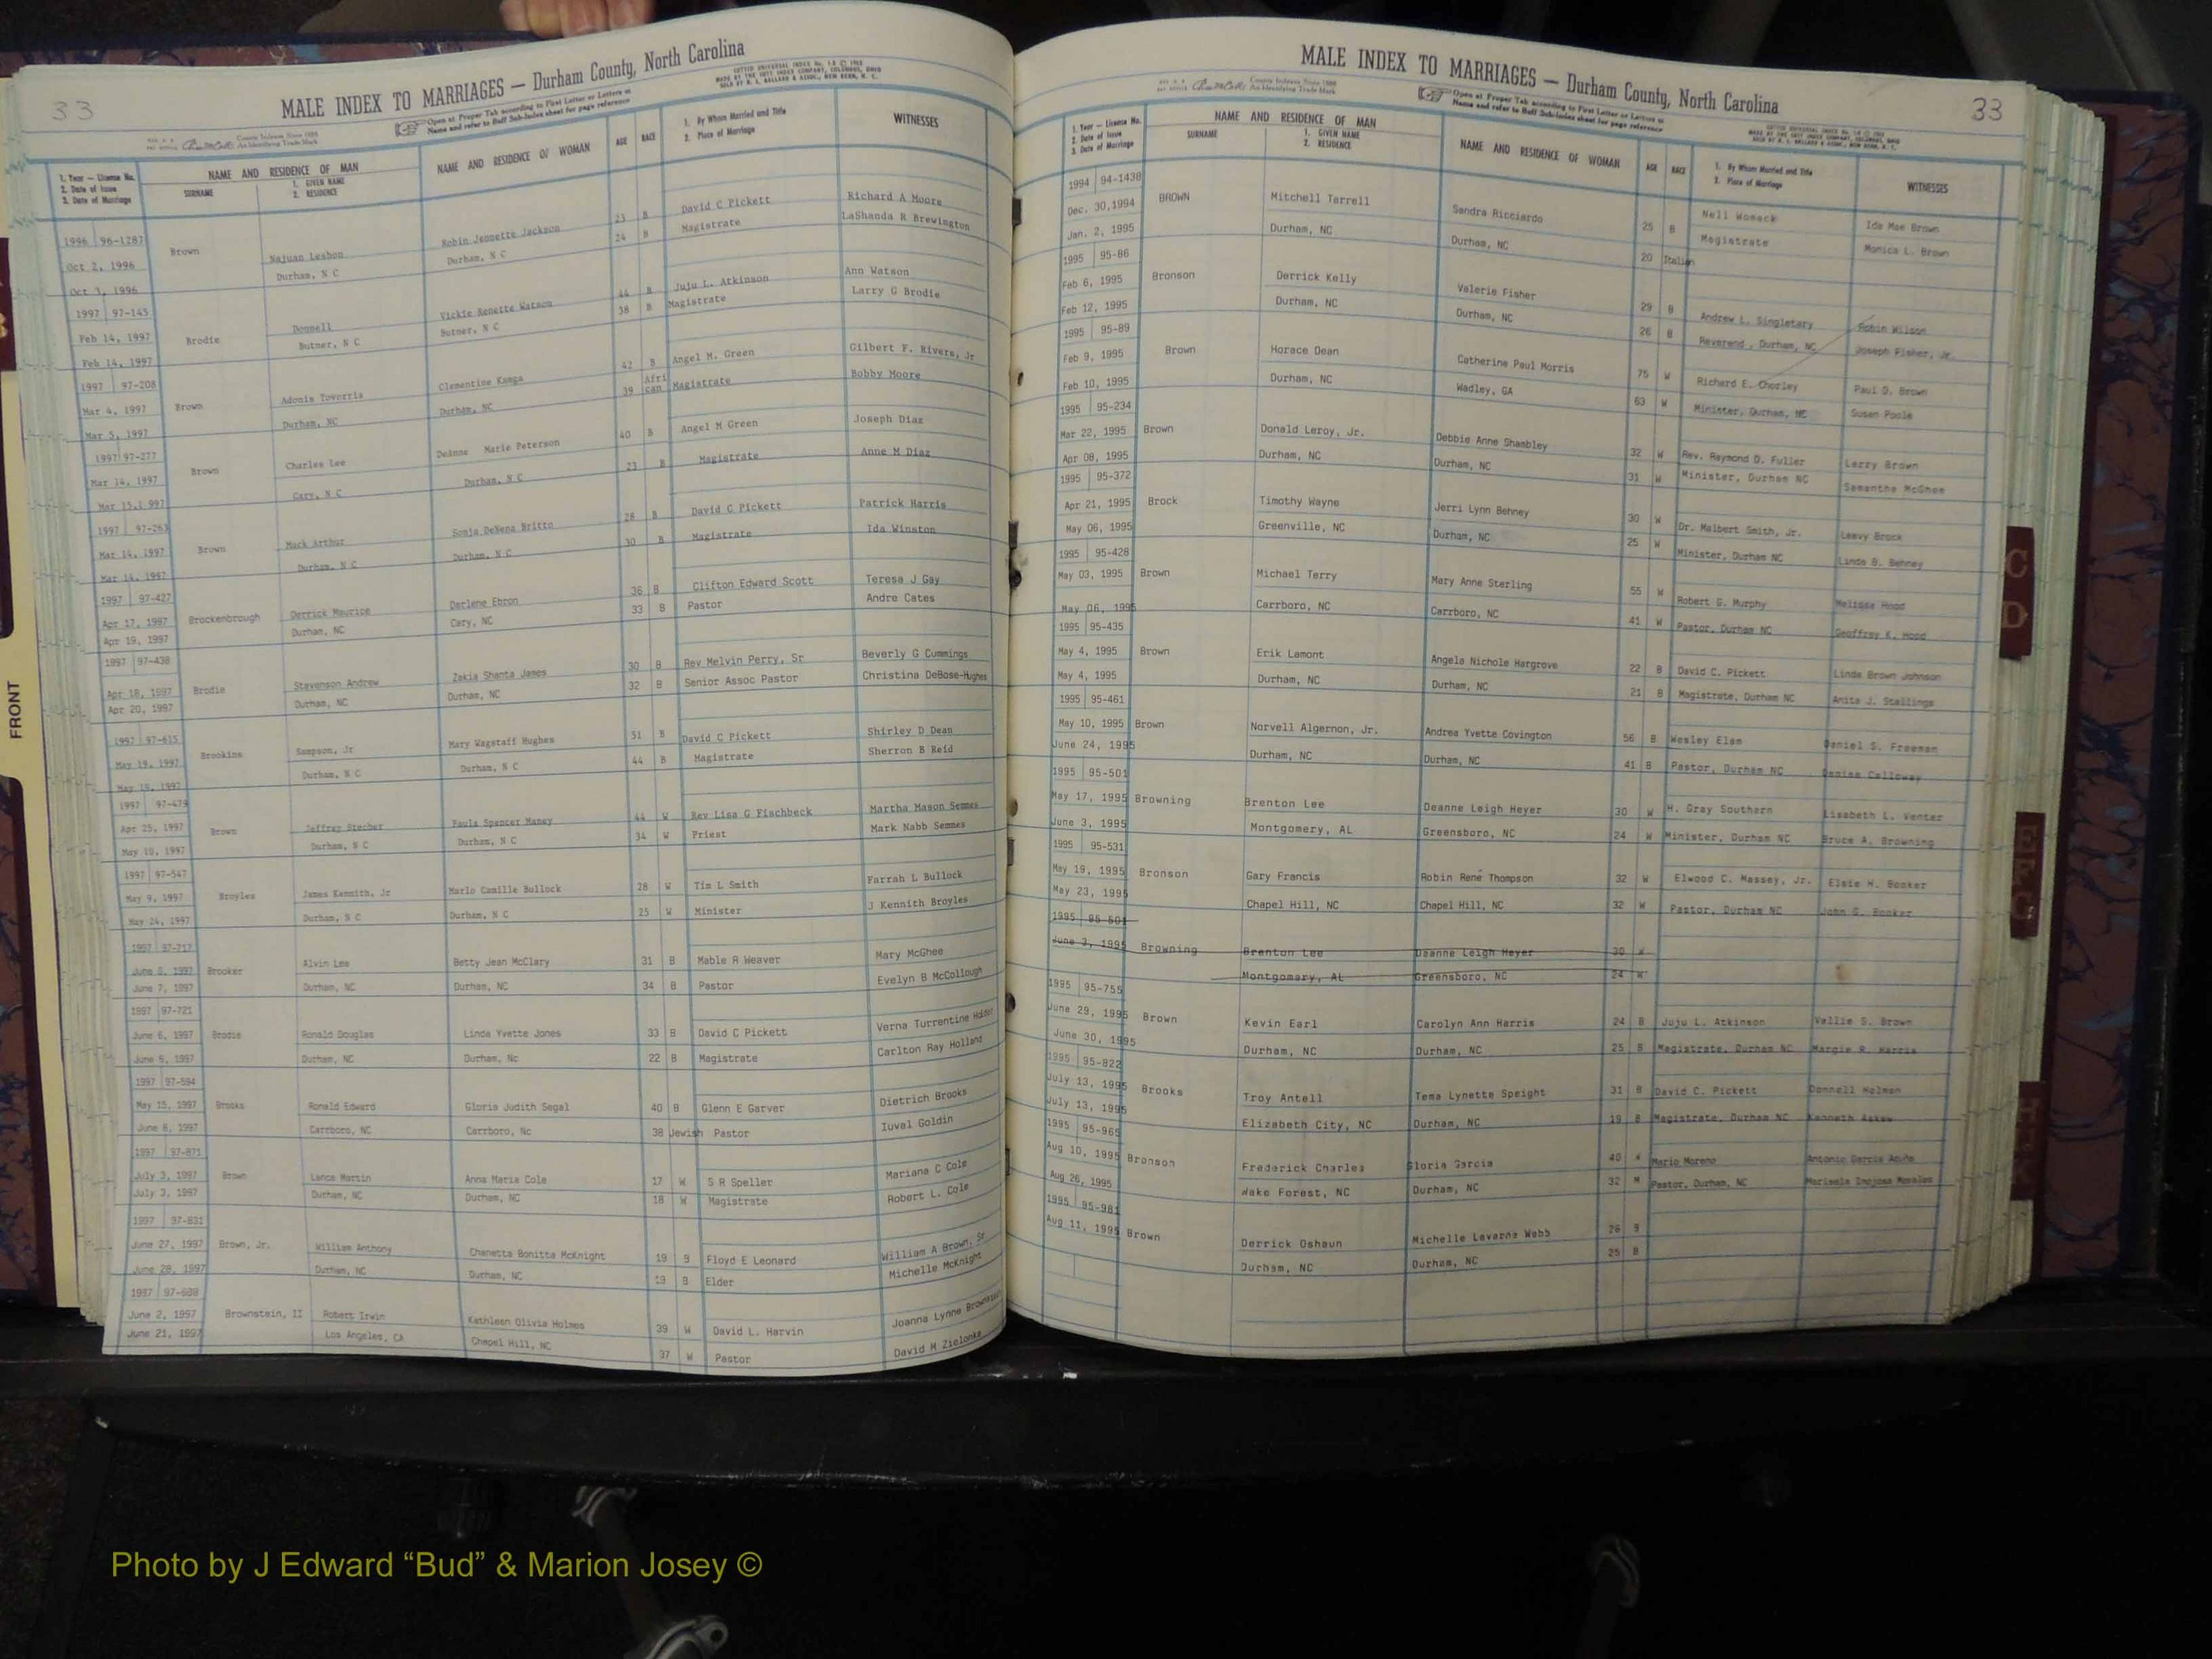 33
MALE INDEX TO MARRIAGES — Durham County, North Carolina
Open at Proper Tab according to First Letter or Letters of
Name and refer to Buff Sub-Index sheet for page reference
County Indexes Since 1888
An Identifying Trade Mark
1. Year — License No.
2. Date of Issue
3. Date of Marriage
NAME AND RESIDENCE OF MAN
SURNAME
1. GIVEN NAME
2. RESIDENCE
NAME AND RESIDENCE OF WOMAN
AGE
RACE
1. By Whom Married and Title
2. Place of Marriage
WITNESSES
1996 96-1287 Brown Najuan Lesbon Robin Jennette Jackson 23 B David C Pickett Richard A Moore
Oct 2, 1996 Durham, N C Durham, N C 24 B Magistrate LaShanda R Brewington
Oct 3, 1996
1997 97-145 Brodie Donnell Vickie Renette Watson 44 B Juju L. Atkinson Ann Watson
Feb 14, 1997 Butner, N C Butner, N C 38 B Magistrate Larry G Brodie
Feb 14, 1997
1997 97-208 Brown Adonis Tovorris Clementine Kanga 42 B Angel M. Green Gilbert F. Rivers, Jr
Mar 4, 1997 Durham, NC Durham, NC 39 Afri can Magistrate Bobby Moore
Mar 5, 1997
1997 97-277 Brown Charles Lee DeAnne Marie Peterson 40 B Angel M Green Joseph Diaz
Mar 14, 1997 Cary, N C Durham, N C 23 B Magistrate Anne M Diaz
Mar 15,1 997
1997 97-263 Brown Mack Arthur Sonja DeNena Britto 28 B David C Pickett Patrick Harris
Mar 14, 1997 Durham, N C Durham, N C 30 B Magistrate Ida Winston
Mar 14, 1997
1997 97-427 Brockenbrough Derrick Maurice Darlene Ebron 36 B Clifton Edward Scott Teresa J Gay
Apr 17, 1997 Durham, NC Cary, NC 33 B Pastor Andre Cates
Apr 19, 1997
1997 97-438 Brodie Stevenson Andrew Zakia Shanta James 30 B Rev Melvin Perry, Sr Beverly G Cummings
Apr 18, 1997 Durham, NC Durham, NC 32 B Senior Assoc Pastor Christina DeBose-Hughes
Apr 20, 1997
1997 97-615 Brookins Sampson, Jr Mary Wagstaff Hughes 51 B David C Pickett Shirley D Dean
May 19, 1997 Durham, N C Durham, N C 44 B Magistrate Sherron B Reid
May 19, 1997
1997 97-479 Brown Jeffrey Stecher Paula Spencer Maney 44 W Rev Lisa G Fischbeck Martha Mason Semmes
Apr 25, 1997 Durham, N C Durham, N C 34 W Priest Mark Nabb Semmes
May 10, 1997
1997 97-547 Broyles James Kennith, Jr Marlo Camille Bullock 28 W Tim L Smith Farrah L Bullock
May 9, 1997 Durham, N C Durham, N C 25 W Minister J Kennith Broyles
May 24, 1997
1997 97-717 Brooker Alvin Lee Betty Jean McClary 31 B Mable R Weaver Mary McGhee
June 6, 1997 Durham, NC Durham, NC 34 B Pastor Evelyn B McCollough
June 7, 1997
1997 97-721
June 6, 1997 Brodie Ronald Douglas Linda Yvette Jones 33 B David C Pickett Verna Turrentine Holder
June 6, 1997 Durham, NC Durham, Nc 22 B Magistrate Carlton Ray Holland
1997 97-594
May 15, 1997 Brooks Ronald Edward Gloria Judith Segal 40 B Glenn E Garver Dietrich Brooks
June 8, 1997 Carrboro, NC Carrboro, Nc 38 Jewish Pastor Iuval Goldin
1997 97-871
July 3, 1997 Brown Lance Martin Anna Maria Cole 17 W S R Speller Mariana C Cole
July 3, 1997 Durham, NC Durham, NC 18 W Magistrate Robert L. Cole
1997 97-831
June 27, 1997 Brown, Jr. William Anthony Chanetta Bonitta McKnight 19 B Floyd E Leonard William A Brown, Sr
June 28, 1997 Durham, NC Durham, NC 19 B Elder Michelle McKnight
1997 97-688
June 2, 1997 Brownstein, II Robert Irwin Kathleen Olivia Holmes 39 W David L. Harvin Joanna Lynne
June 21, 1997 Los Angeles, CA Chapel Hill, NC 37 W Pastor David M Zielonka
MALE INDEX TO MARRIAGES — Durham County, North Carolina
33
Open at Proper Tab according to First Letter or Letters of
Name and refer to Buff Sub-Index sheet for page reference
County Indexes Since 1888
An Identifying Trade Mark
1. Year — License No.
2. Date of Issue
3. Date of Marriage
NAME AND RESIDENCE OF MAN
SURNAME
1. GIVEN NAME
2. RESIDENCE
NAME AND RESIDENCE OF WOMAN
AGE
RACE
1. By Whom Married and Title
2. Place of Marriage
WITNESSES
1994 94-1438
Dec. 30,1994 BROWN Mitchell Terrell Sandra Ricciardo 25 B Nell Womack Ida Mae Brown
Jan. 2, 1995 Durham, NC Durham, NC 20 Italian Magistrate Monica L. Brown
1995 95-86
Feb 6, 1995 Bronson Derrick Kelly Valerie Fisher 29 B Andrew L. Singletary Robin Wilson
Feb 12, 1995 Durham, NC Durham, NC 26 B Reverend , Durham, NC Joseph Fisher, Jr.
1995 95-89
Feb 9, 1995 Brown Horace Dean Catherine Paul Morris 75 W Richard E. Chorley Paul D. Brown
Feb 10, 1995 Durham, NC Wadley, GA 63 W Minister, Durham, NC Susan Poole
1995 95-234
Mar 22, 1995 Brown Donald Leroy, Jr. Debbie Anne Shambley 32 W Rev. Raymond D. Fuller Larry Brown
Apr 08, 1995 Durham, NC Durham, NC 31 W Minister, Durham NC Samantha McGhee
1995 95-372
Apr 21, 1995 Brock Timothy Wayne Jerri Lynn Behney 30 W Dr. Malbert Smith, Jr. Leavy Brock
May 06, 1995 Greenville, NC Durham, NC 25 W Minister, Durham NC Linda B. Behney
1995 95-428
May 03, 1995 Brown Michael Terry Mary Anne Sterling 55 W Robert G. Murphy Melissa Hood
May 06, 1995 Carrboro, NC Carrboro, NC 41 W Pastor, Durham NC Geoffrey K. Hood
1995 95-435
May 4, 1995 Brown Erik Lamont Angela Nichole Hargrove 22 B David C. Pickett Linda Brown Johnson
May 4, 1995 Durham, NC Durham, NC 21 B Magistrate, Durham NC Anita J. Stallings
1995 95-461
May 10, 1995 Brown Norvell Algernon, Jr. Andrea Yvette Covington 56 B Wesley Elam Daniel S. Freeman
June 24, 1995 Durham, NC Durham, NC 41 B Pastor, Durham NC Denise Calloway
1995 95-501
May 17, 1995 Browning Brenton Lee Deanne Leigh Heyer 30 W H. Gray Southern Lisabeth L. Venter
June 3, 1995 Montgomery, AL Greensboro, NC 24 W Minister, Durham NC Bruce A. Browning
1995 95-531
May 19, 1995 Bronson Gary Francis Robin René Thompson 32 W Elwood C. Massey, Jr. Elsie H. Booker
May 23, 1995 Chapel Hill, NC Chapel Hill, NC 32 W Pastor, Durham NC John S. Booker
1995 95-501
June 3, 1995 Browning Brenton Lee Deanne Leigh Heyer 30 W
Montgomery, AL Greensboro, NC 24 W
1995 95-755
June 29, 1995 Brown Kevin Earl Carolyn Ann Harris 24 B Juju L. Atkinson Vallie S. Brown
June 30, 1995 Durham, NC Durham, NC 25 B Magistrate, Durham NC Margie R. Harris
1995 95-822
July 13, 1995 Brooks Troy Antell Tema Lynette Speight 31 B David C. Pickett Donnell Holman
July 13, 1995 Elizabeth City, NC Durham, NC 19 B Magistrate, Durham NC Kenneth Askew
1995 95-965
Aug 10, 1995 Bronson Frederick Charles Gloria Garcia 40 Mario Moreno Antonio Garcia Acuña
Aug 26, 1995 Wake Forest, NC Durham, NC 32 Pastor, Durham, NC Marisela Inojosa Morales
1995 95-981
Aug 11, 1995 Brown Derrick Oshaun Michelle Laverne Webb 26 B
Durham, NC Durham, NC 25 B
FRONT
C
D
E F G
Photo by J Edward “Bud” & Marion Josey ©